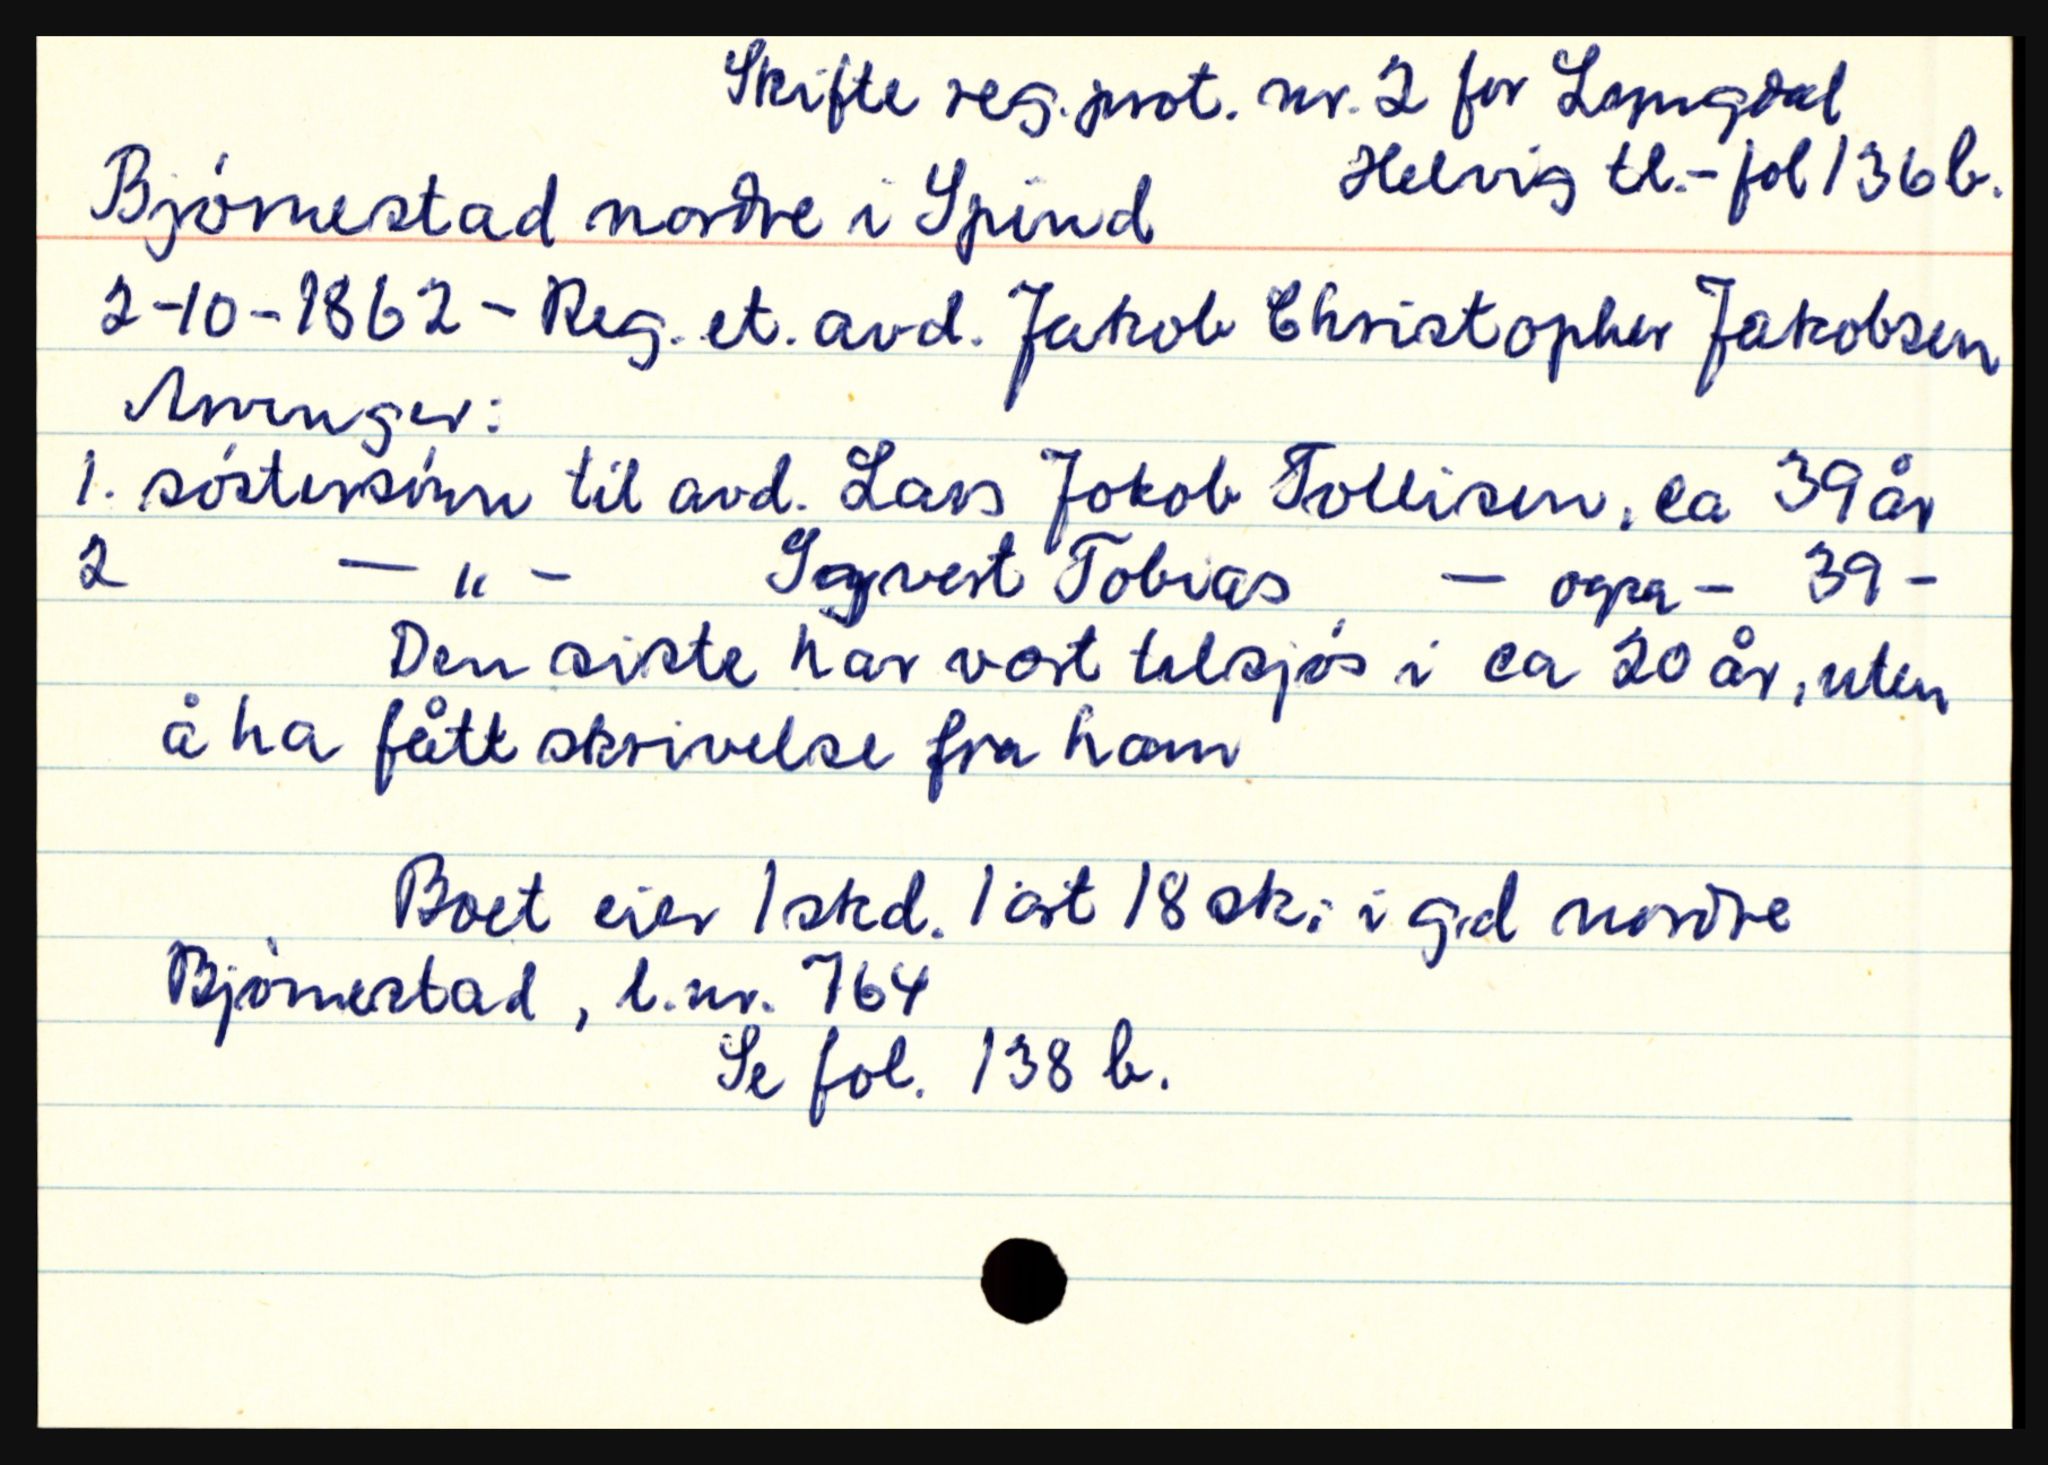 Skifte reg.prot. nr. 2 for Lyngdal
Helvig tl.- fol 136 b.
Bjórnestad nordre i Spind
2-10-1862 - Reg. et. avd. Jakob Christopher Jakobsen
Arvinger:
1. sóstersónn til avd. Lars Jakob Tollisen, ca 39 år
2 — " - Sygvest Tobias — ogsa - 39 -
Den siste har vort tilsjós i ca 20 år, uten
å ha fått skrivelse fra ham
Boet eier 1 skd. 1 ort 18 sk. i g.d nordre
Bjórnestad, l.nr. 764
Se fol. 138 b.